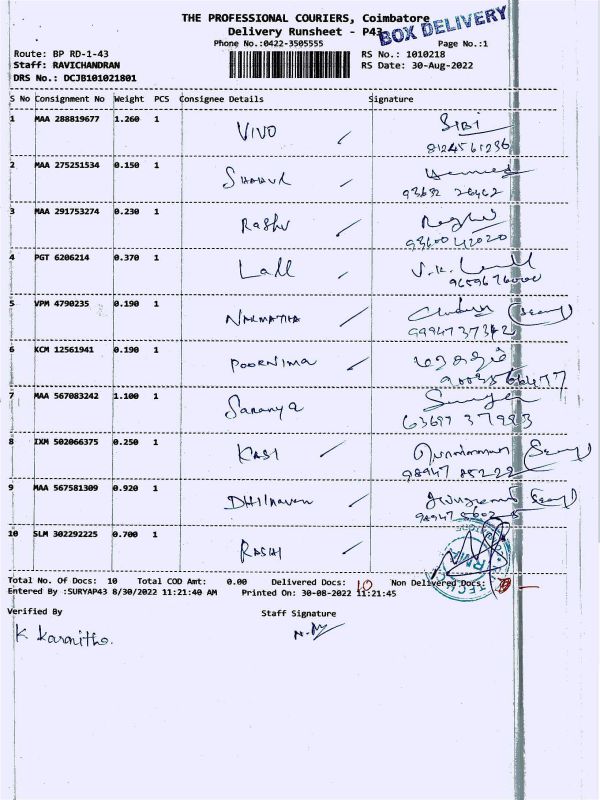 THE PROFESSIONAL COURIERS, Coimbatore
Delivery Runsheet - P43
BOX DELIVERY
Phone No.:0422-3505555 Page No.:1
Route: BP RD-1-43 RS No.: 1010218
Staff: RAVICHANDRAN RS Date: 30-Aug-2022
DRS No.: DCJB101021801
S No Consignment No Weight PCS Consignee Details Signature
1 MAA 288819677 1.260 1 VIVO SIBI
8124561236
2 MAA 275251534 0.150 1
93632 26462
3 MAA 291753274 0.230 1 Raghu Raghu
93600 42020
4 PGT 6206214 0.370 1 Lall V.K. Lall
9659676000
5 VPM 4790235 0.190 1 NARMATHA (Seal)
9994737342
6 KCM 12561941 0.190 1 POORNIMA
90035 66477
7 MAA 567083242 1.100 1 Saranya
63697 37983
8 IXM 502066375 0.250 1 KASI (Seal)
98947 85222
9 MAA 567581309 0.920 1 (Seal)
10 SLM 302292225 0.700 1 RASHI
Total No. Of Docs: 10 Total COD Amt: 0.00 Delivered Docs: 10 Non Delivered Docs:
Entered By :SURYAP43 8/30/2022 11:21:40 AM Printed On: 30-08-2022 11:21:45
Verified By Staff Signature
K